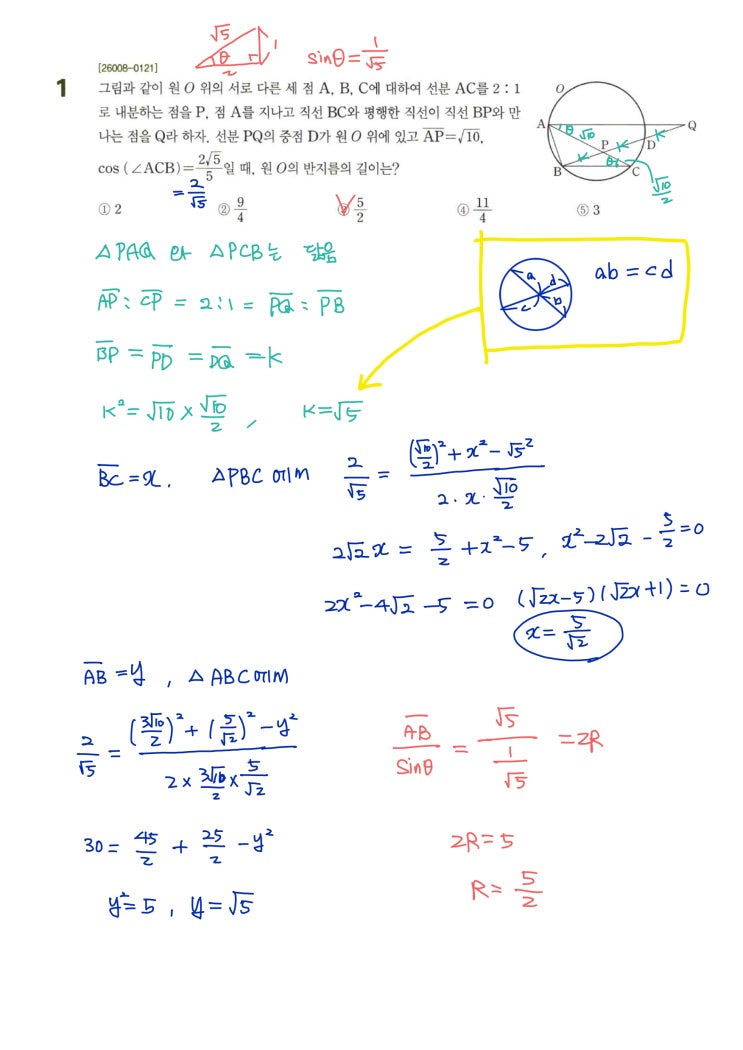 √5
1
θ
2
sinθ = 1/√5
[26008-0121]
1
그림과 같이 원 O 위의 서로 다른 세 점 A, B, C에 대하여 선분 AC를 2 : 1
로 내분하는 점을 P, 점 A를 지나고 직선 BC와 평행한 직선이 직선 BP와 만
나는 점을 Q라 하자. 선분 PQ의 중점 D가 원 O 위에 있고 A̅P̅=√10,
cos (∠ACB)=2√5/5일 때, 원 O의 반지름의 길이는?
= 2/√5
① 2 ② 9/4 ③ 5/2 ④ 11/4 ⑤ 3
O
A θ √10 K Q
P K D
B K θ C
√10/2
△PAQ 와 △PCB는 닮음
A̅P̅ : C̅P̅ = 2:1 = P̅Q̅ : P̅B̅
B̅P̅ = P̅D̅ = D̅Q̅ = K
K² = √10 × √10/2 , K=√5
a d c b
ab = cd
B̅C̅ = x. △PBC 에서 2/√5 = ((√10/2)² + x² - √5²)/(2·x·√10/2)
2√2x = 5/2 + x² - 5 , x² - 2√2 - 5/2 = 0
2x² - 4√2 - 5 = 0 (√2x-5)(√2x+1) = 0
x = 5/√2
A̅B̅ = y , △ABC 에서
2/√5 = ((3√10/2)² + (5/√2)² - y²)/(2 × 3√10/2 × 5/√2)
A̅B̅/Sinθ = √5/(1/√5) = 2R
30 = 45/2 + 25/2 - y²
2R = 5
y² = 5 , y = √5
R = 5/2